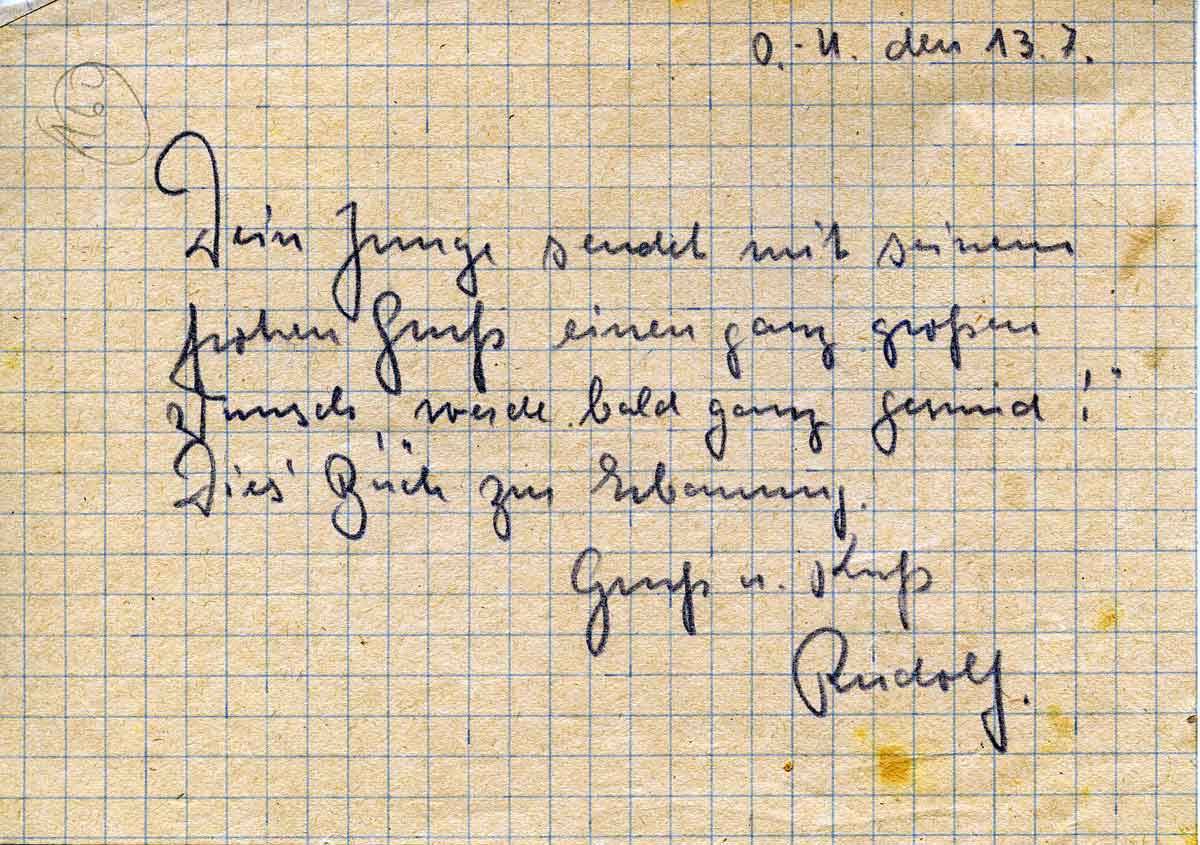 O.-U. den 13.7.
160
Dein Junge sendet mit seinem
frohen Gruß einen ganz großen
Wunsch „werde bald ganz gesund!“
Dies' Buch zur Erbauung.
Gruß u. Kuß
Rudolf.